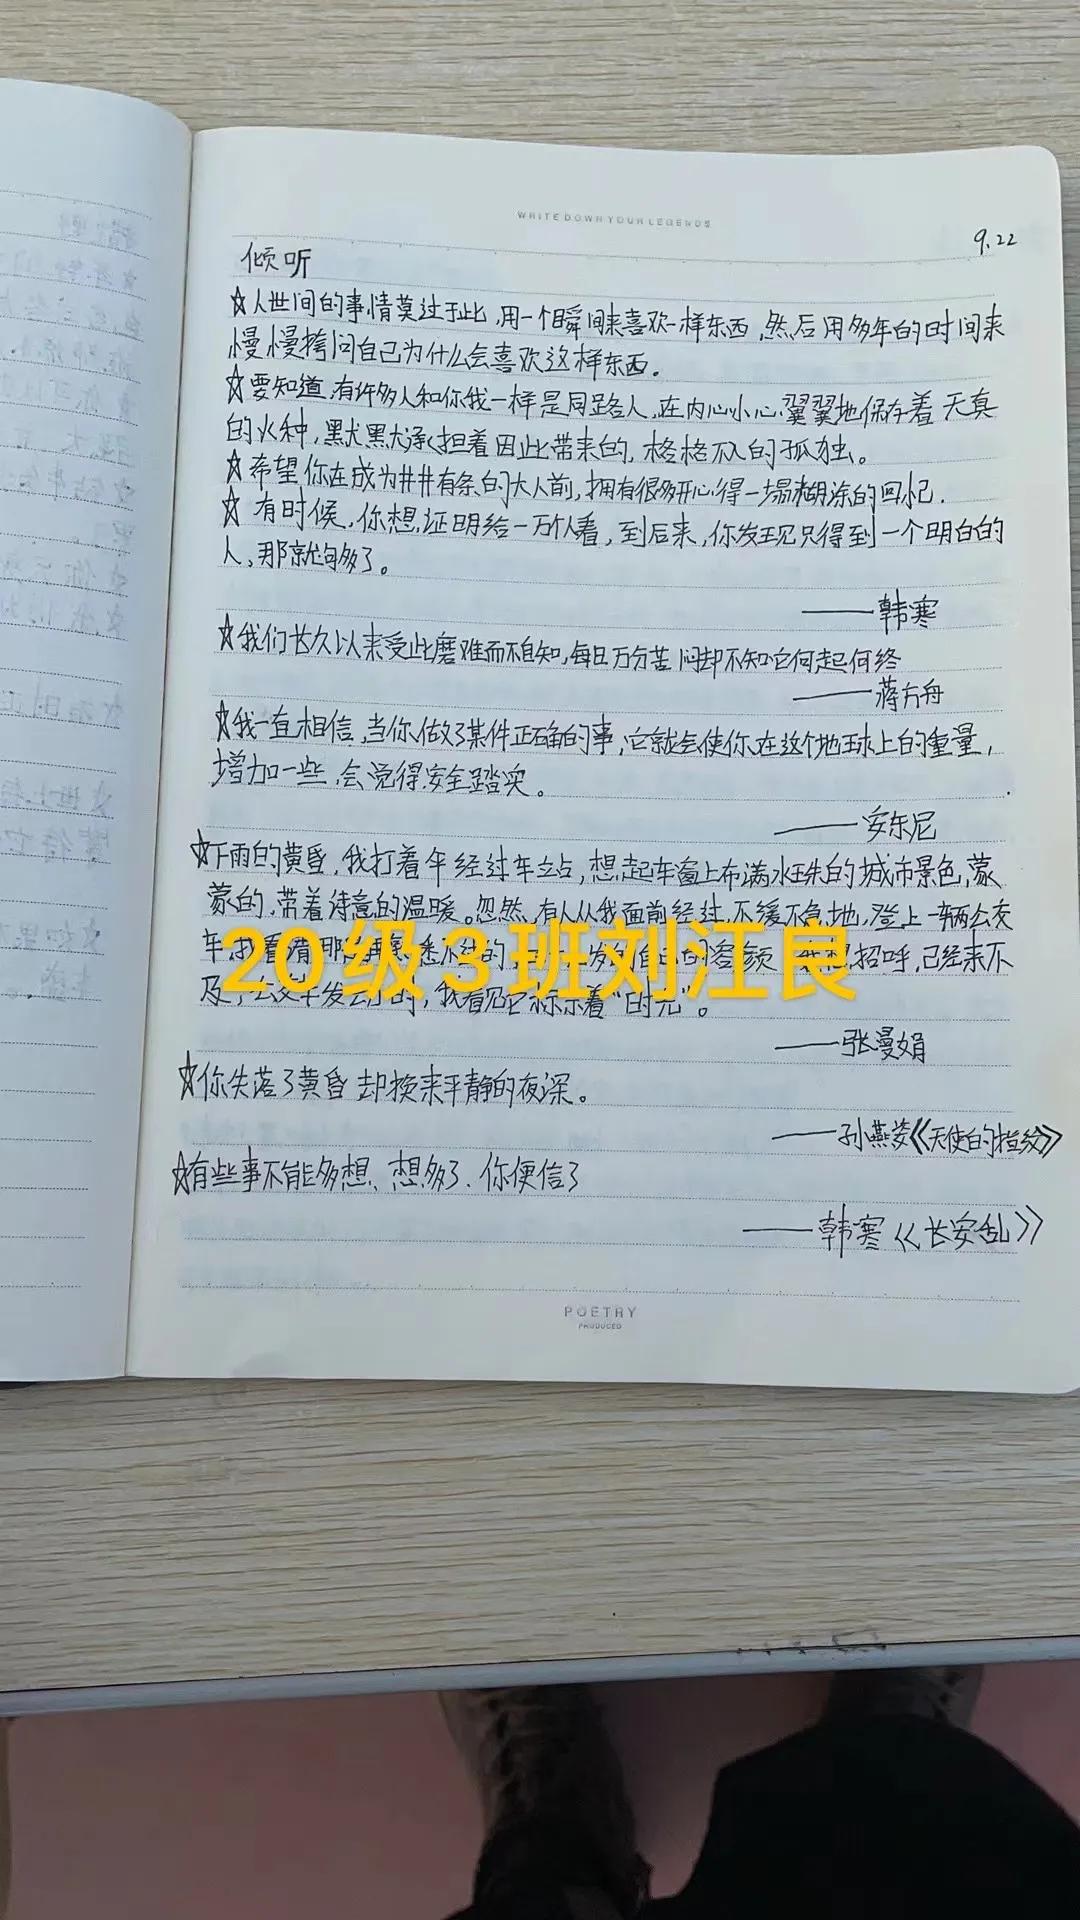 WRITE DOWN YOUR LEGENDS
9.22
倾听
☆人世间的事情莫过于此,用一个瞬间来喜欢一样东西,然后用多年的时间来
慢慢拷问自己为什么会喜欢这样东西。
☆要知道,有许多人和你我一样是同路人,在内心小心翼翼地保存着天真
的火种,默默承担着因此带来的,格格不入的孤独。
☆希望你在成为井井有条的大人前,拥有很多开心得一塌糊涂的回忆.
☆有时候,你想证明给一万个人看,到后来,你发现只得到一个明白的
人,那就够了。
——韩寒
☆我们长久以来受此磨难而不自知,每日万分苦闷却不知它何起何终
——蒋方舟
☆我一直相信,当你做了某件正确的事,它就会使你在这个地球上的重量,
增加一些,会觉得安全踏实。
——安东尼
☆下雨的黄昏,我打着伞经过车站,想起车窗上布满水珠的城市景色,蒙
蒙的,带着诗意的温暖。忽然,有人从我面前经过,不缓不急地,登上一辆公交
车,我看着那 发 自己的容颜 招呼,已经来不
及,公交车发动的,我看见它标示着“时光”。
20级3班刘江良
——张曼娟
☆你失落了黄昏 却换来平静的夜深。
——孙燕姿《天使的指纹》
☆有些事不能多想、想多了、你便信了
——韩寒《长安乱》
POETRY
PRODUCED